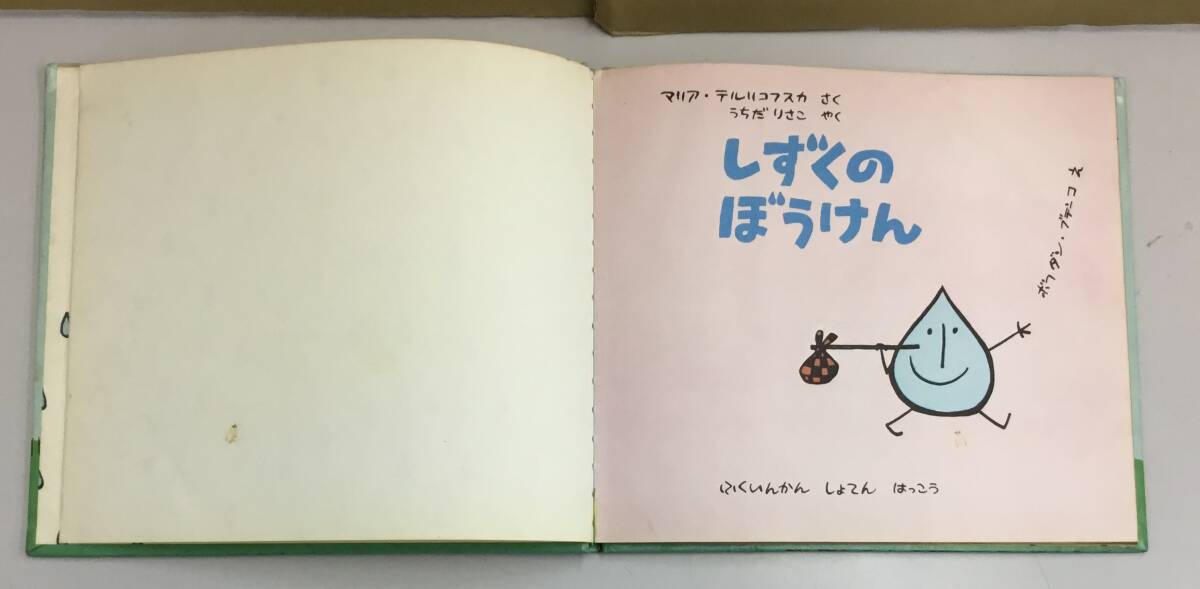 マリア・テルリコフスカ さく
うちだ りさこ やく
しずくの
ぼうけん
ボフダン・ブテンコ え
ふくいんかん しょてん はっこう